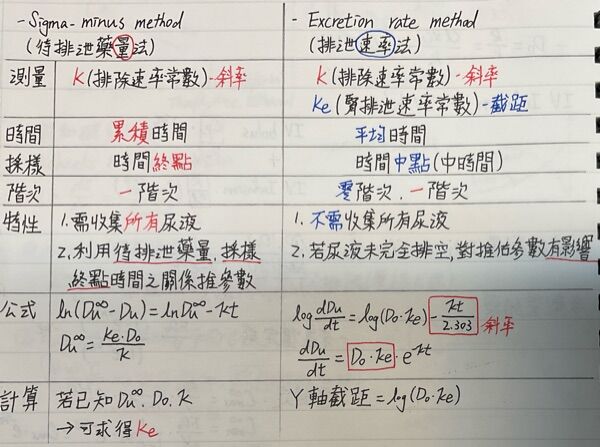 - Sigma-minus method
(待排泄藥量法)
- Excretion rate method
(排泄速率法)
測量 K(排除速率常數)-斜率
K(排除速率常數)-斜率
Ke(腎排泄速率常數)-截距
時間 累積時間 平均時間
採樣 時間終點 時間中點(中時間)
階次 一階次 零階次.一階次
特性 1.需收集所有尿液
2.利用待排泄藥量,採樣
終點時間之關係推參數
1.不需收集所有尿液
2.若尿液未完全排空,對推估參數有影響
公式 ln(Du^∞-Du)=lnDu^∞-kt
Du^∞=Ke·Do/K
log dDu/dt=log(Do·Ke)-Kt/2.303 斜率
dDu/dt=Do·Ke·e^-Kt
計算 若已知Du^∞.Do.K
→可求得Ke
Y軸截距=log(Do·Ke)